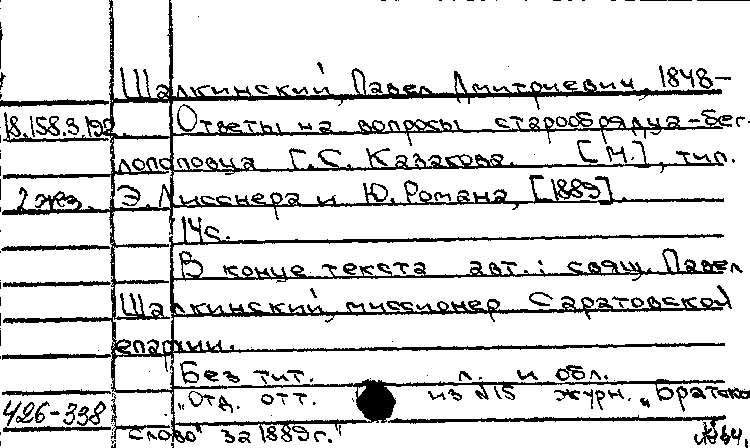 Шалкинский, Павел Дмитриевич, 1848-
18.158.3.192. Ответы на вопросы старообрядца-бег-
лопоповца Г.С. Казакова. [М.], тип.
2 экз. Э. Лисснера и Ю. Романа, [1889].
14 с.
В конце текста авт.: свящ. Павел
Шалкинский, миссионер Саратовской
епархии.
Без тит. л. и обл.
426-338 "Отд. отт. из №15 журн. „Братско
слово" за 1889 г."